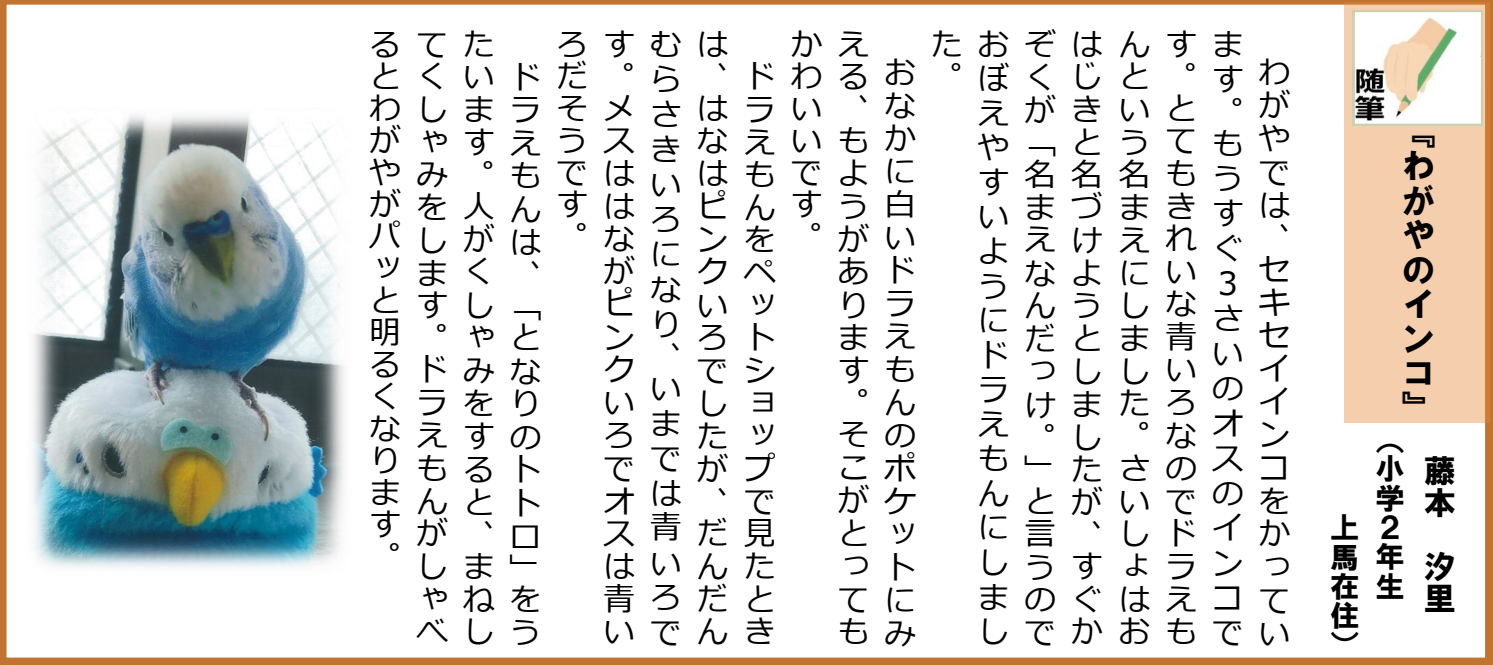 随筆
『わがやのインコ』
藤本　汐里
（小学２年生
上馬在住）
わがやでは、セキセイインコをかってい
ます。もうすぐ3さいのオスのインコで
す。とてもきれいな青いろなのでドラえも
んという名まえにしました。さいしょはお
はじきと名づけようとしましたが、すぐか
ぞくが「名まえなんだっけ。」と言うので
おぼえやすいようにドラえもんにしまし
た。
おなかに白いドラえもんのポケットにみ
える、もようがあります。そこがとっても
かわいいです。
ドラえもんをペットショップで見たとき
は、はなはピンクいろでしたが、だんだん
むらさきいろになり、いまでは青いろで
す。メスははながピンクいろでオスは青い
ろだそうです。
ドラえもんは、「となりのトトロ」をう
たいます。人がくしゃみをすると、まねし
てくしゃみをします。ドラえもんがしゃべ
るとわがやがパッと明るくなります。